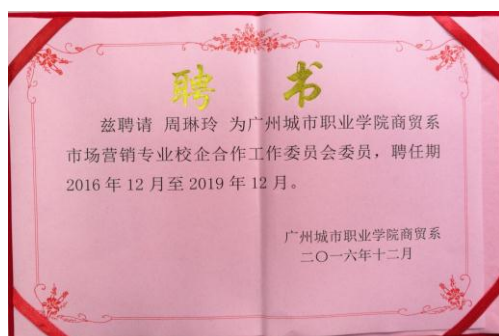 聘书
兹聘请 周琳玲 为广州城市职业学院商贸系
市场营销专业校企合作工作委员会委员，聘任期
2016年12月至2019年12月。
广州城市职业学院商贸系
二〇一六年十二月